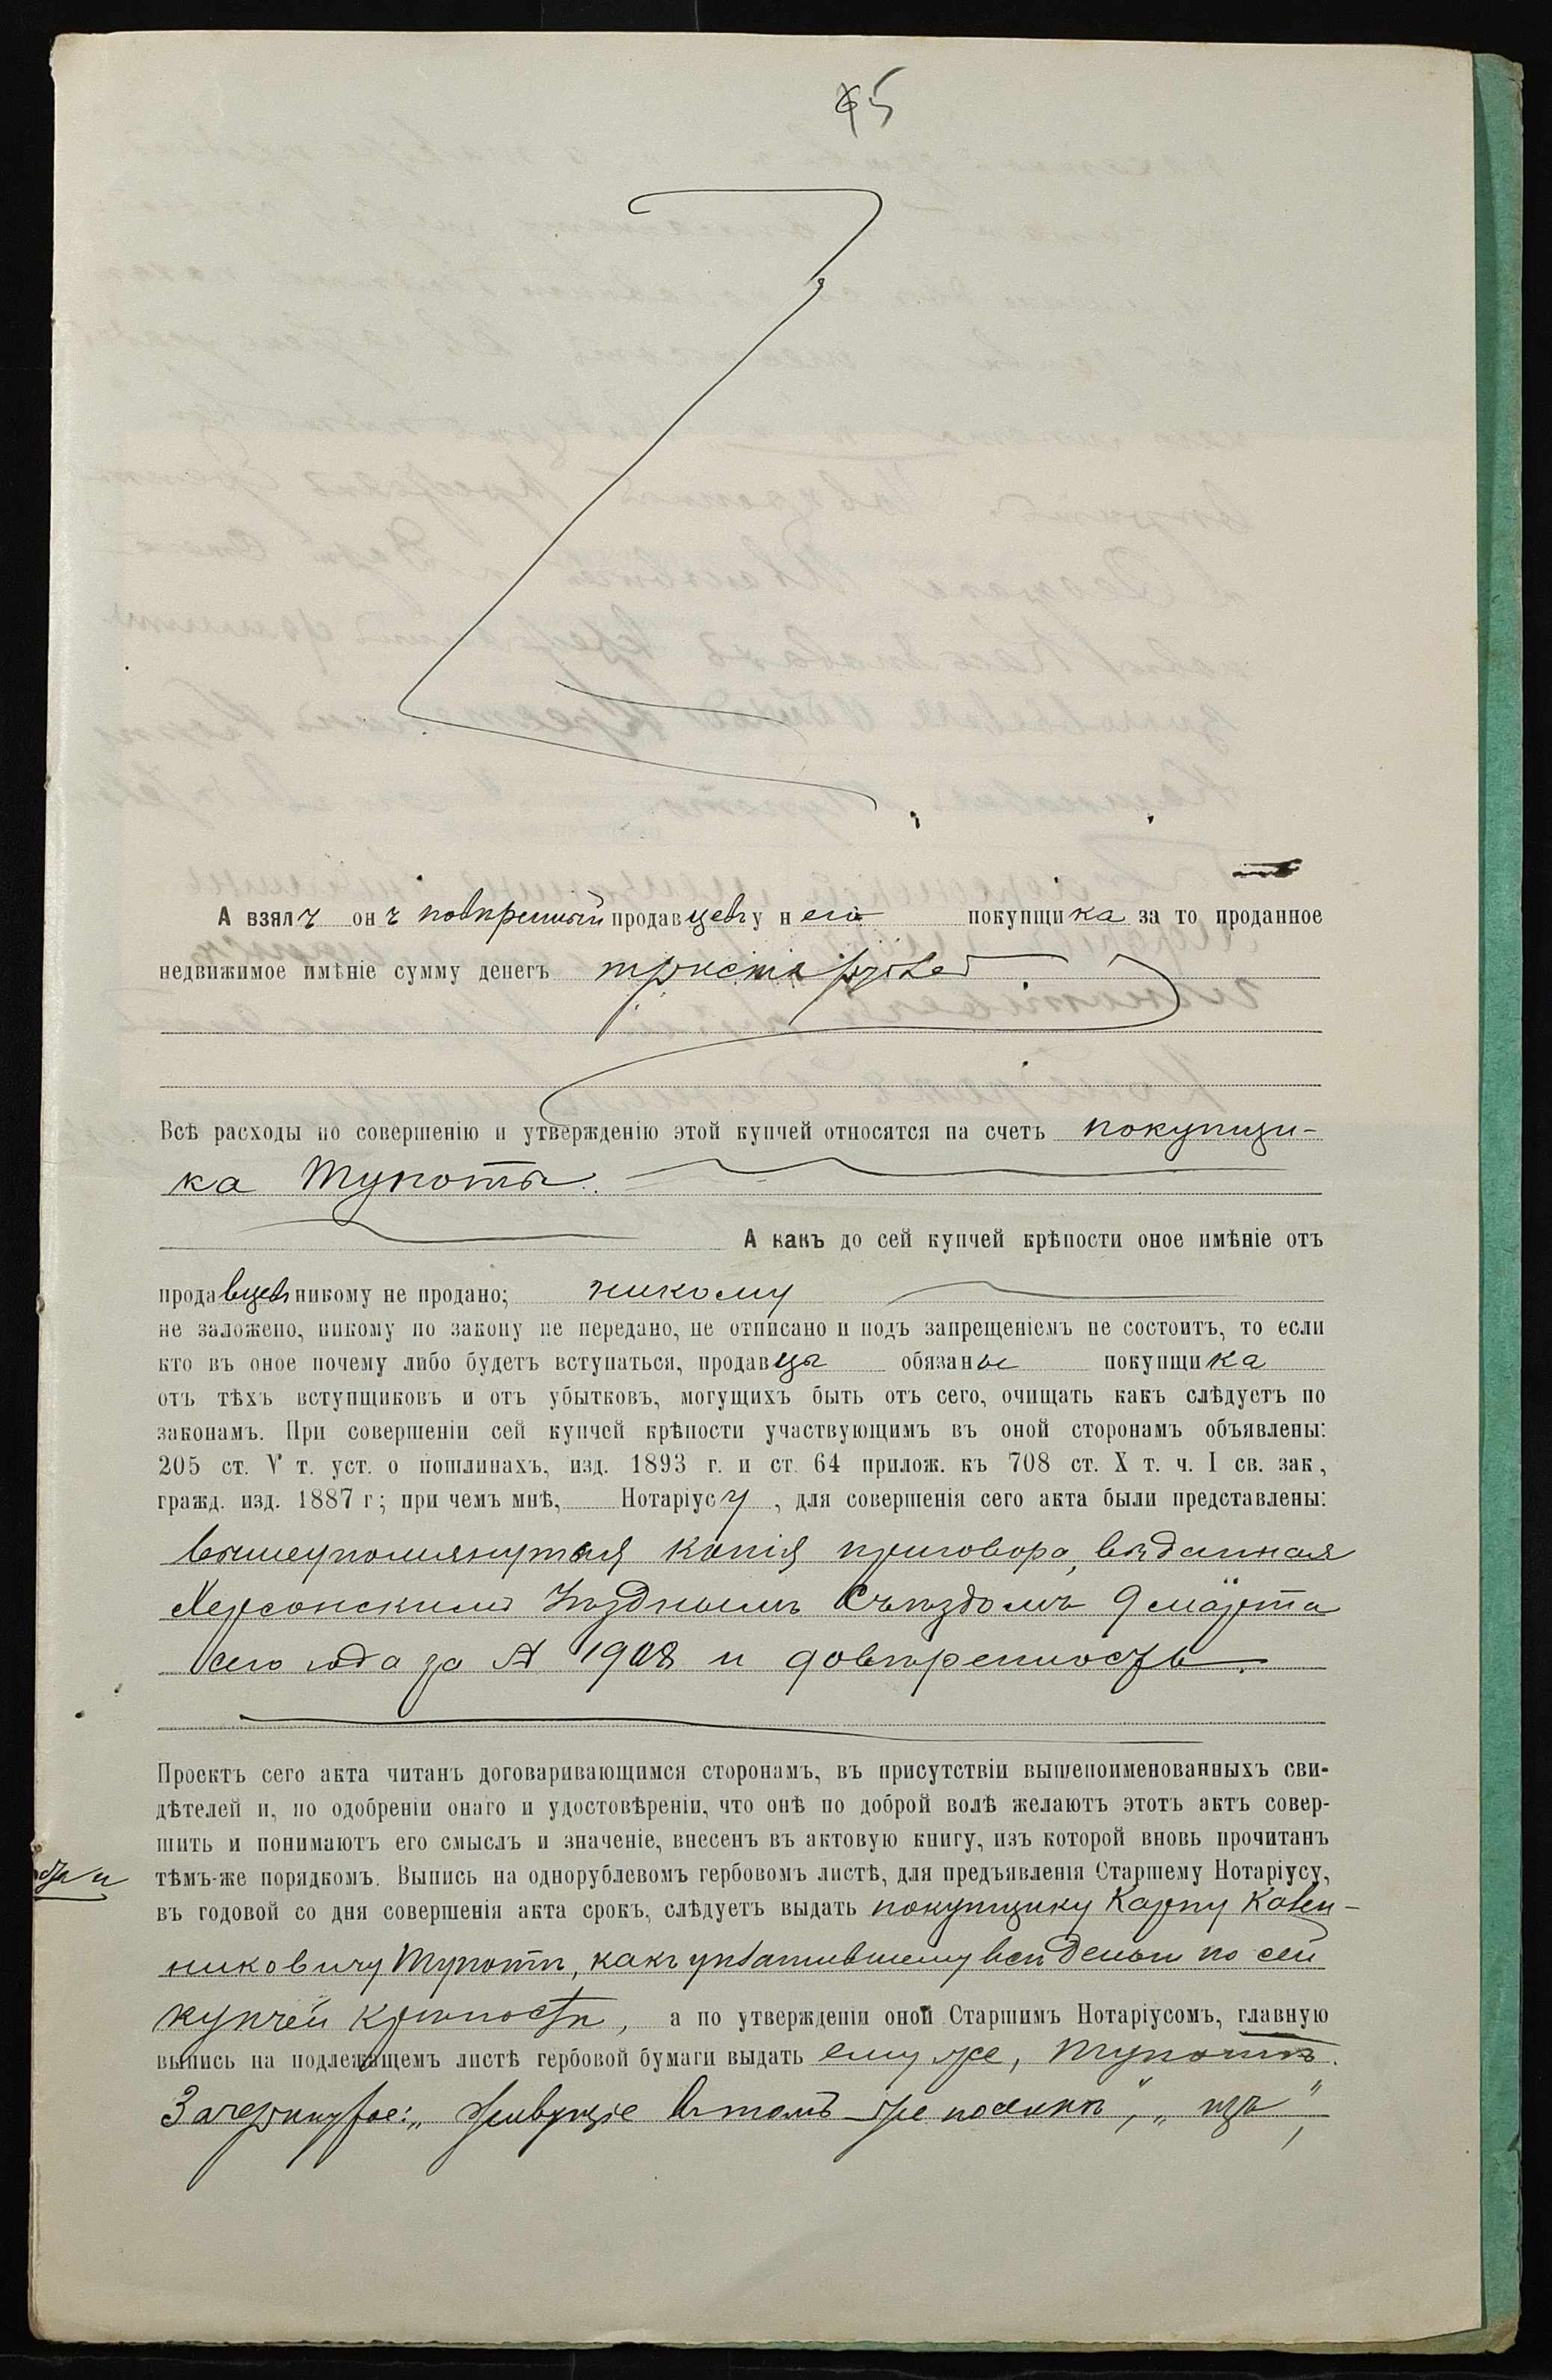 5
А взялъ онъ повѣренный продавцевъ у него покупщика за то проданное
недвижимое имѣніе сумму денегъ триста рублей
Всѣ расходы по совершенію и утвержденію этой купчей относятся на счетъ покупщи-
ка Тупоты.
А какъ до сей купчей крѣпости оное имѣніе отъ
продавцевъ никому не продано; никому
не заложено, никому по закону не передано, не отписано и подъ запрещеніемъ не состоитъ, то если
кто въ оное почему либо будетъ вступаться, продавцы обязаны покупщика
отъ тѣхъ вступщиковъ и отъ убытковъ, могущихъ быть отъ сего, очищать какъ слѣдуетъ по
законамъ. При совершеніи сей купчей крѣпости участвующимъ въ оной сторонамъ объявлены:
205 ст. V т. уст. о пошлинахъ, изд. 1893 г. и ст. 64 прилож. къ 708 ст. X т. ч. I св. зак,
гражд. изд. 1887 г; при чемъ мнѣ, Нотаріусу, для совершенія сего акта были представлены:
вышеупомянутая копія приговора, выданная
Херсонскимъ Уѣзднымъ Съѣздомъ 9 марта
сего года за № 1908 и довѣренность.
Проектъ сего акта читанъ договаривающимся сторонамъ, въ присутствіи вышепоименованныхъ сви-
дѣтелей и, по одобреніи онаго и удостовѣреніи, что онѣ по доброй волѣ желаютъ этотъ актъ совер-
шить и понимаютъ его смыслъ и значеніе, внесенъ въ актовую книгу, изъ которой вновь прочитанъ
тѣмъ-же порядкомъ. Выпись на однорублевомъ гербовомъ листѣ, для предъявленія Старшему Нотаріусу,
въ годовой со дня совершенія акта срокъ, слѣдуетъ выдать покупщику Карпу
никовичу Тупотѣ, какъ уплатившему всѣ деньги по сей
купчей крѣпости, а по утвержденіи оной Старшимъ Нотаріусомъ, главную
выпись на подлежащемъ листѣ гербовой бумаги выдать ему же, Тупотѣ.
Зачеркнутое: „живущіе въ томъ же поселкѣ", „изъ",